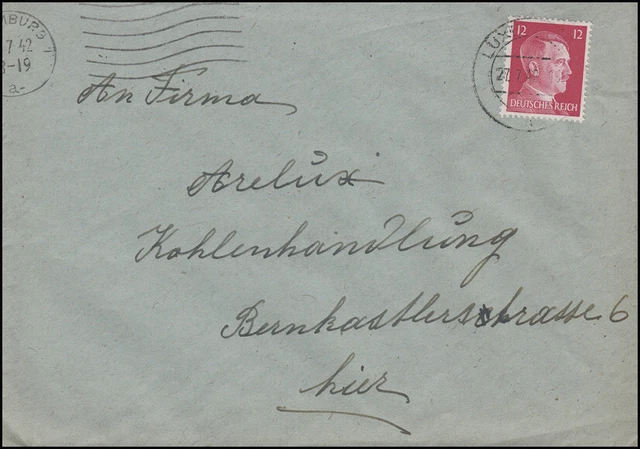 MBURG 1
.7 42
-19
a-
LUX
27.7
12 12
DEUTSCHES REICH
An Firma
Arelux
Kohlenhandlung
Bernkastlerstrasse 6
hier